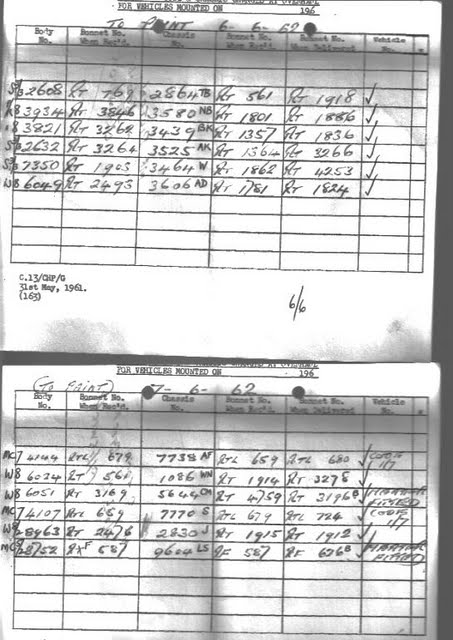 FOR VEHICLES MOUNTED ON 196
TO PAINT 6-6-62
Body No. Bonnet No. When Rec'd. Chassis No. Bonnet No. When Rec'd. Bonnet No. When Delivered Vehicle No.
2608 RT 769 2864 TB RT 561 RT 1918 ✓
3934 RT 3846 3580 NB RT 1801 RT 1886 ✓
3821 RT 3262 3439 BK RT 1357 RT 1836 ✓
2632 RT 3264 3525 AK RT 1364 RT 3266 ✓
7350 RT 1903 3464 W RT 1862 RT 4253 ✓
W8 6049 RT 2493 3606 AD RT 1781 RT 1824 ✓
C.13/CHP/G
31st May, 1961.
(163)
6/6
FOR VEHICLES MOUNTED ON 196
(TO PAINT) 7-6-62
Body No. Bonnet No. When Rec'd. Chassis No. Bonnet No. When Rec'd. Bonnet No. When Delivered Vehicle No.
MC/ 4144 RTL 679 7738 AF RTL 659 RTL 680
W8 6024 RT 561 1086 WN RT 1914 RT 3278 ✓
W8 6051 RT 3169 5644 CM RT 4759 RT 3196 FITTED
MC/ 4107 RTL 659 7770 S RTL 679 RTL 724
W8 28963 RT 2476 2830 J RT 1915 RT 1912 ✓
MC 8752 RF 587 9604 LS RF 587 RF 676 B FITTED